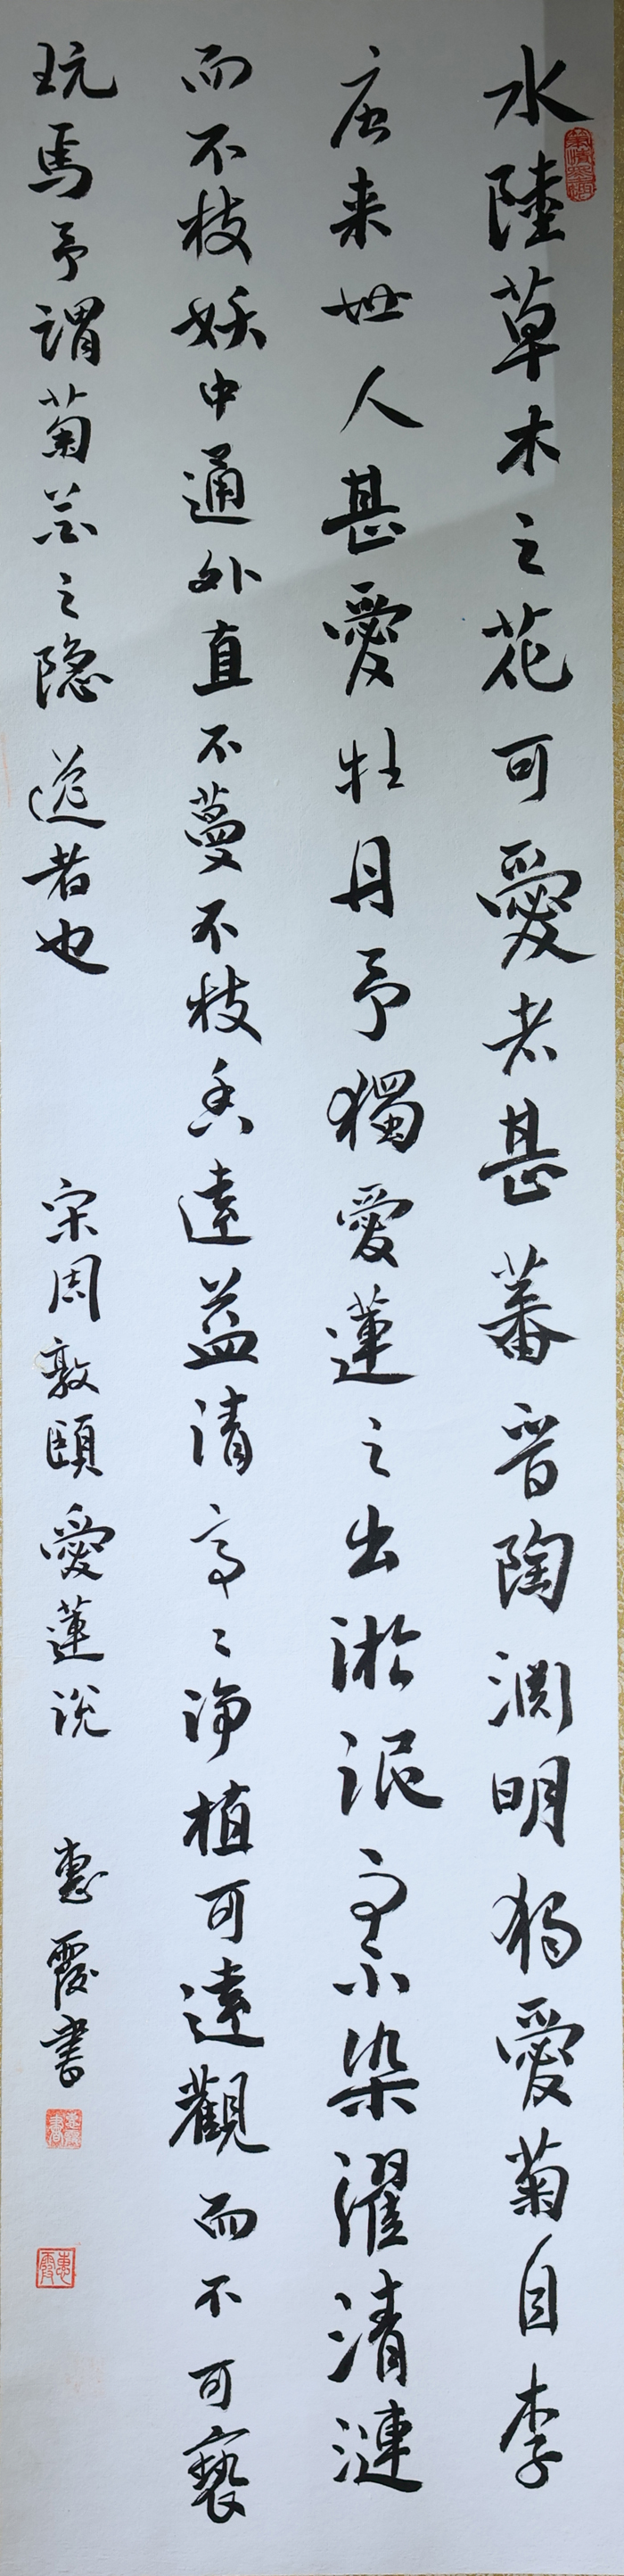 水陸草木之花可愛者甚蕃晋陶渊明独愛菊自李
唐来世人甚愛牡丹予獨愛蓮之出淤泥而不染濯清漣
而不枝妖中通外直不蔓不枝香遠益清亭々净植可遠觀而不可褻
玩焉予謂菊花之隐逸者也 宋周敦頤愛蓮説 惠霞書